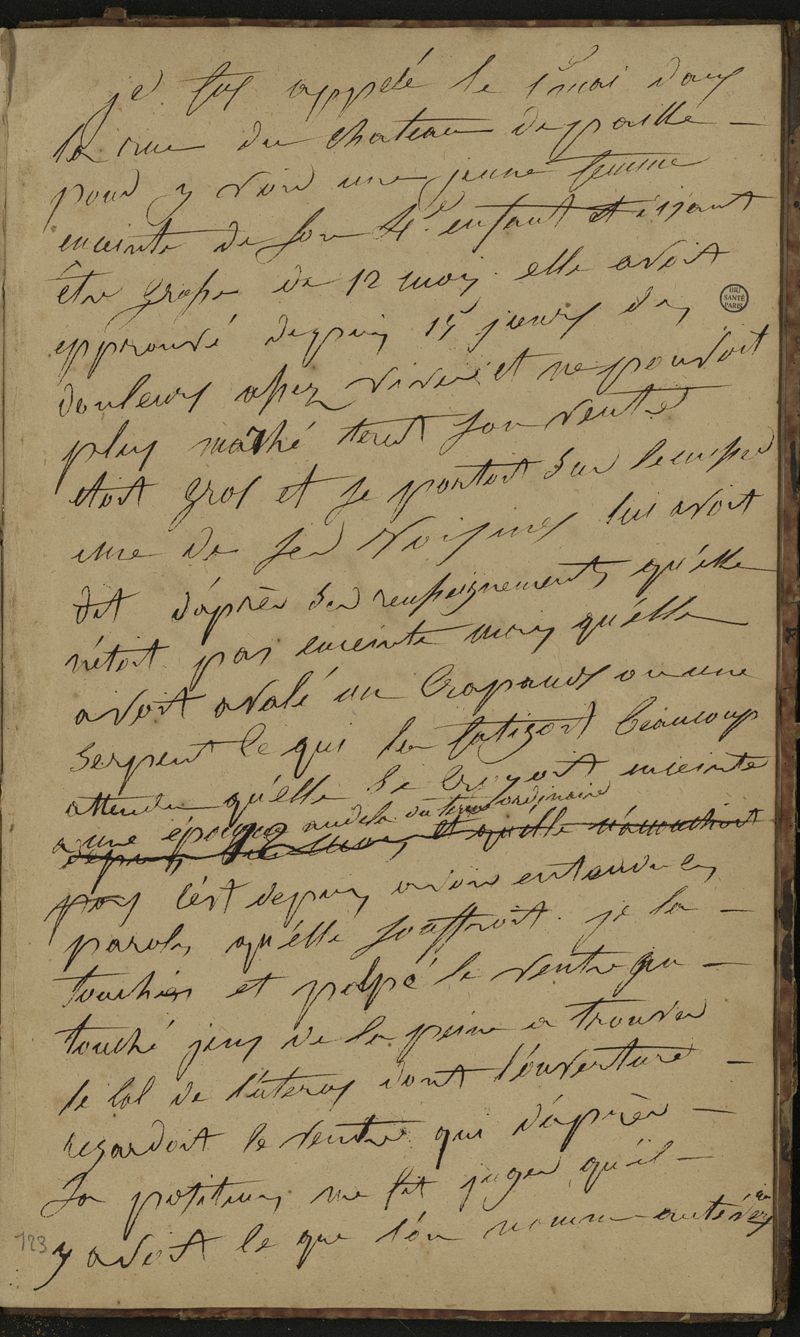 je fus appelé le 1er mai dans
la rue du chateau de paille
pour y voir une jeune femme
enceinte de son 4e enfant et disant
être grosse de 12 mois. elle avoit
epprouvé depuis 15 jours des
douleurs assez vives et ne pouvoit
plus marché tent son ventre
etoit gros et se portoit sur les
une de ses voisines lui avoit
dit d'après ses renseignements qu'elle
n'étoit pas enceinte mais qu'elle
avoit avalé un Crapaud ou une
Serpent ce qui la fatigoit beaucoup
attendu qu'elle se croyoit enceinte
a une époque audela du terme ordinaire
depuis 12 mois et qu'elle n'accouchoit
pas C'est depuis avoir entendu ces
paroles qu'elle souffroit. je la
touchés et palpé le ventre au
touché jeus de la peine a trouver
le Col de l'uterus dont l'ouverture
regardoit le ventre qui d'après
sa position me fit juger qu'il
y avoit ce que l'on nomme
123
BIU
SANTÉ
PARIS